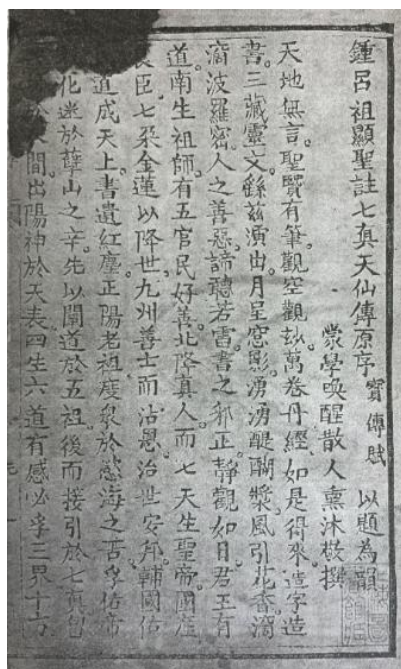 鍾呂祖顯聖註七真天仙傳原序 寶傳賦 以題為韻
蒙學喚醒散人熏沐敬撰
天地無言。聖賢有筆。觀空觀玅。萬卷丹經。如是得來。造字造
書。三藏靈文。繇茲演出。月呈窓影。湧湧醍醐漿。風引花香。滴
滴波羅密。人之善惡。諦聽若雷。書之邪正。靜觀如日。君王有
道。南生祖師。有五官民好善。北降真人而七。天生聖帝。國產
臣。七朶金蓮以降世。九州善士而沾恩。治世安邦。輔國佑
道成天上。書遺紅塵。正陽老祖。度衆於慾海之苦。孚佑帝
化迷於孽山之辛。先以闡道於五祖。後而接引於七真。包
間。出陽神於天表。四生六道。有感必孚。三界十方